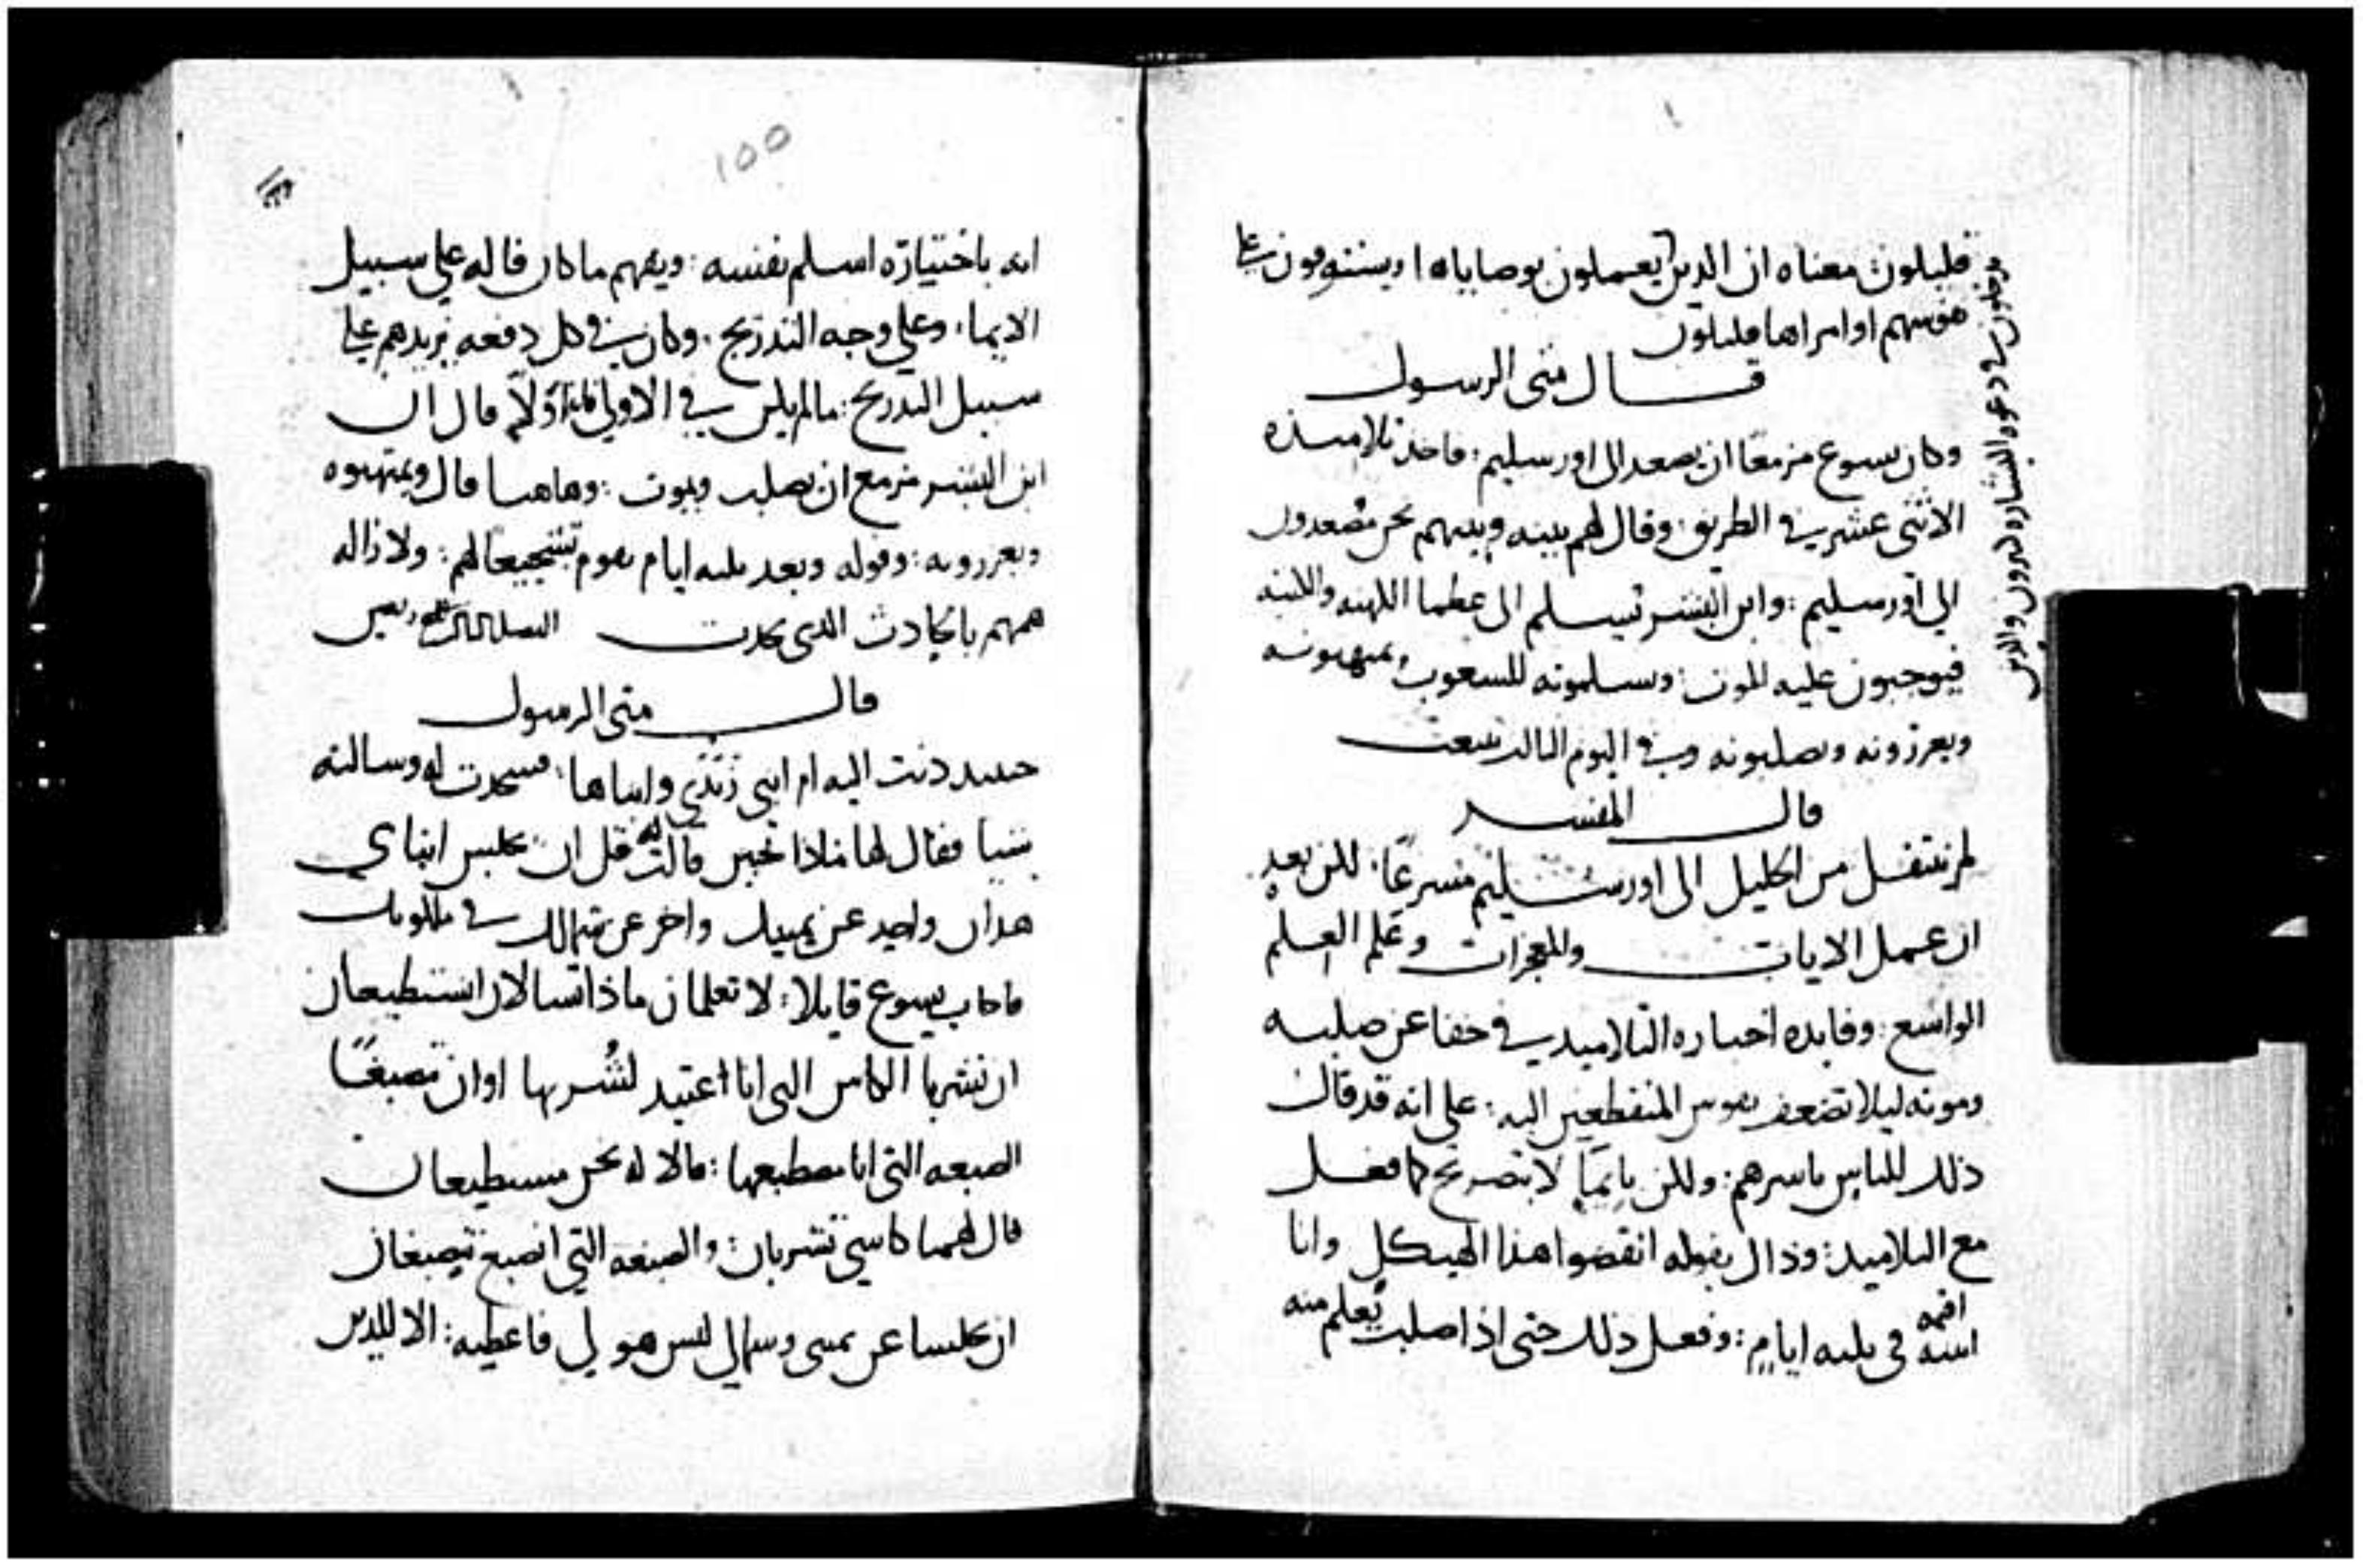 قليلون: معناه ان الدين يعملون بوصاياه او يستوفون على
نفوسهم اوامراها قليلون
يدخلون في دعوه البشاره كثيرون والدين
قال متى الرسول
وكان يسوع مزمعًا ان يصعد الى اورسليم: فاخذ تلاميذه
الاثنى عشر في الطريق: وقال لهم بينه وبينهم نحن مصعدون
الي اورسليم: وابن البشر يسلم الى عظما الكهنه والكتبه
فيوجبون عليه الموت: ويسلمونه للشعوب ويمتهنونه
ويعزرونه ويصلبونه وفي اليوم الثالث ينبعث
قال المفسر
لم ينتقل من الجليل الى اورشليم مسرعًا: لكن بعد
ان عمل الايات والمعجزات وعلم العلم
الواسع: وفايده اخباره التلاميد في خفا عن صلبه
وموته ليلا تضعف نفوس المنقطعين اليه: على انه قد قال
ذلك للناس باسرهم: ولكن بايما لا بتصريح كما فعل
مع التلاميد: وذاك بقوله انقضوا هذا الهيكل وانا
اقيمه
ابنيه في ثلثه ايام: وفعل ذلك حتى اذا صلب يعلم منه
100
انه باختياره اسلم نفسه: ويفهم ما كان قاله على سبيل
الايما: وعلى وجه التدريج: وكان في كل دفعه يزيدهم على
سبيل التدريج: ما لم يكن في الاولى اولا قال ان
ابن البشر مزمع ان يصلب ويموت: وهاهنا قال ويمتهنوه
ويعزرونه: وقوله وبعد ثلثه ايام يقوم تشجيعًا لهم: ولازاله
همهم بالحادث الذى يحدث
قال متى الرسول
حينيد دنت اليه ام ابني زبدي وابناها: فسجدت له وسالته
شيا فقال لها ماذا تحبين قالت له قل ان يجلس ابناي
هذان واحد عن يمينك واخر عن شمالك في ملكوتك
فاجاب يسوع قايلا: لا تعلمان ماذا تسالان استطيعان
ان تشربا الكاس التى انا اعتيد لشُربها او ان تصبغا
الصبغه التي انا مصطبغها: قالا له نحن نستطيعان
قال لهما كاسي تشربان: والصبغه التي اصبغ تصبغان
ان تجلسا عن يمينى وشمالي ليس هو لي فاعطيه: الا للدين